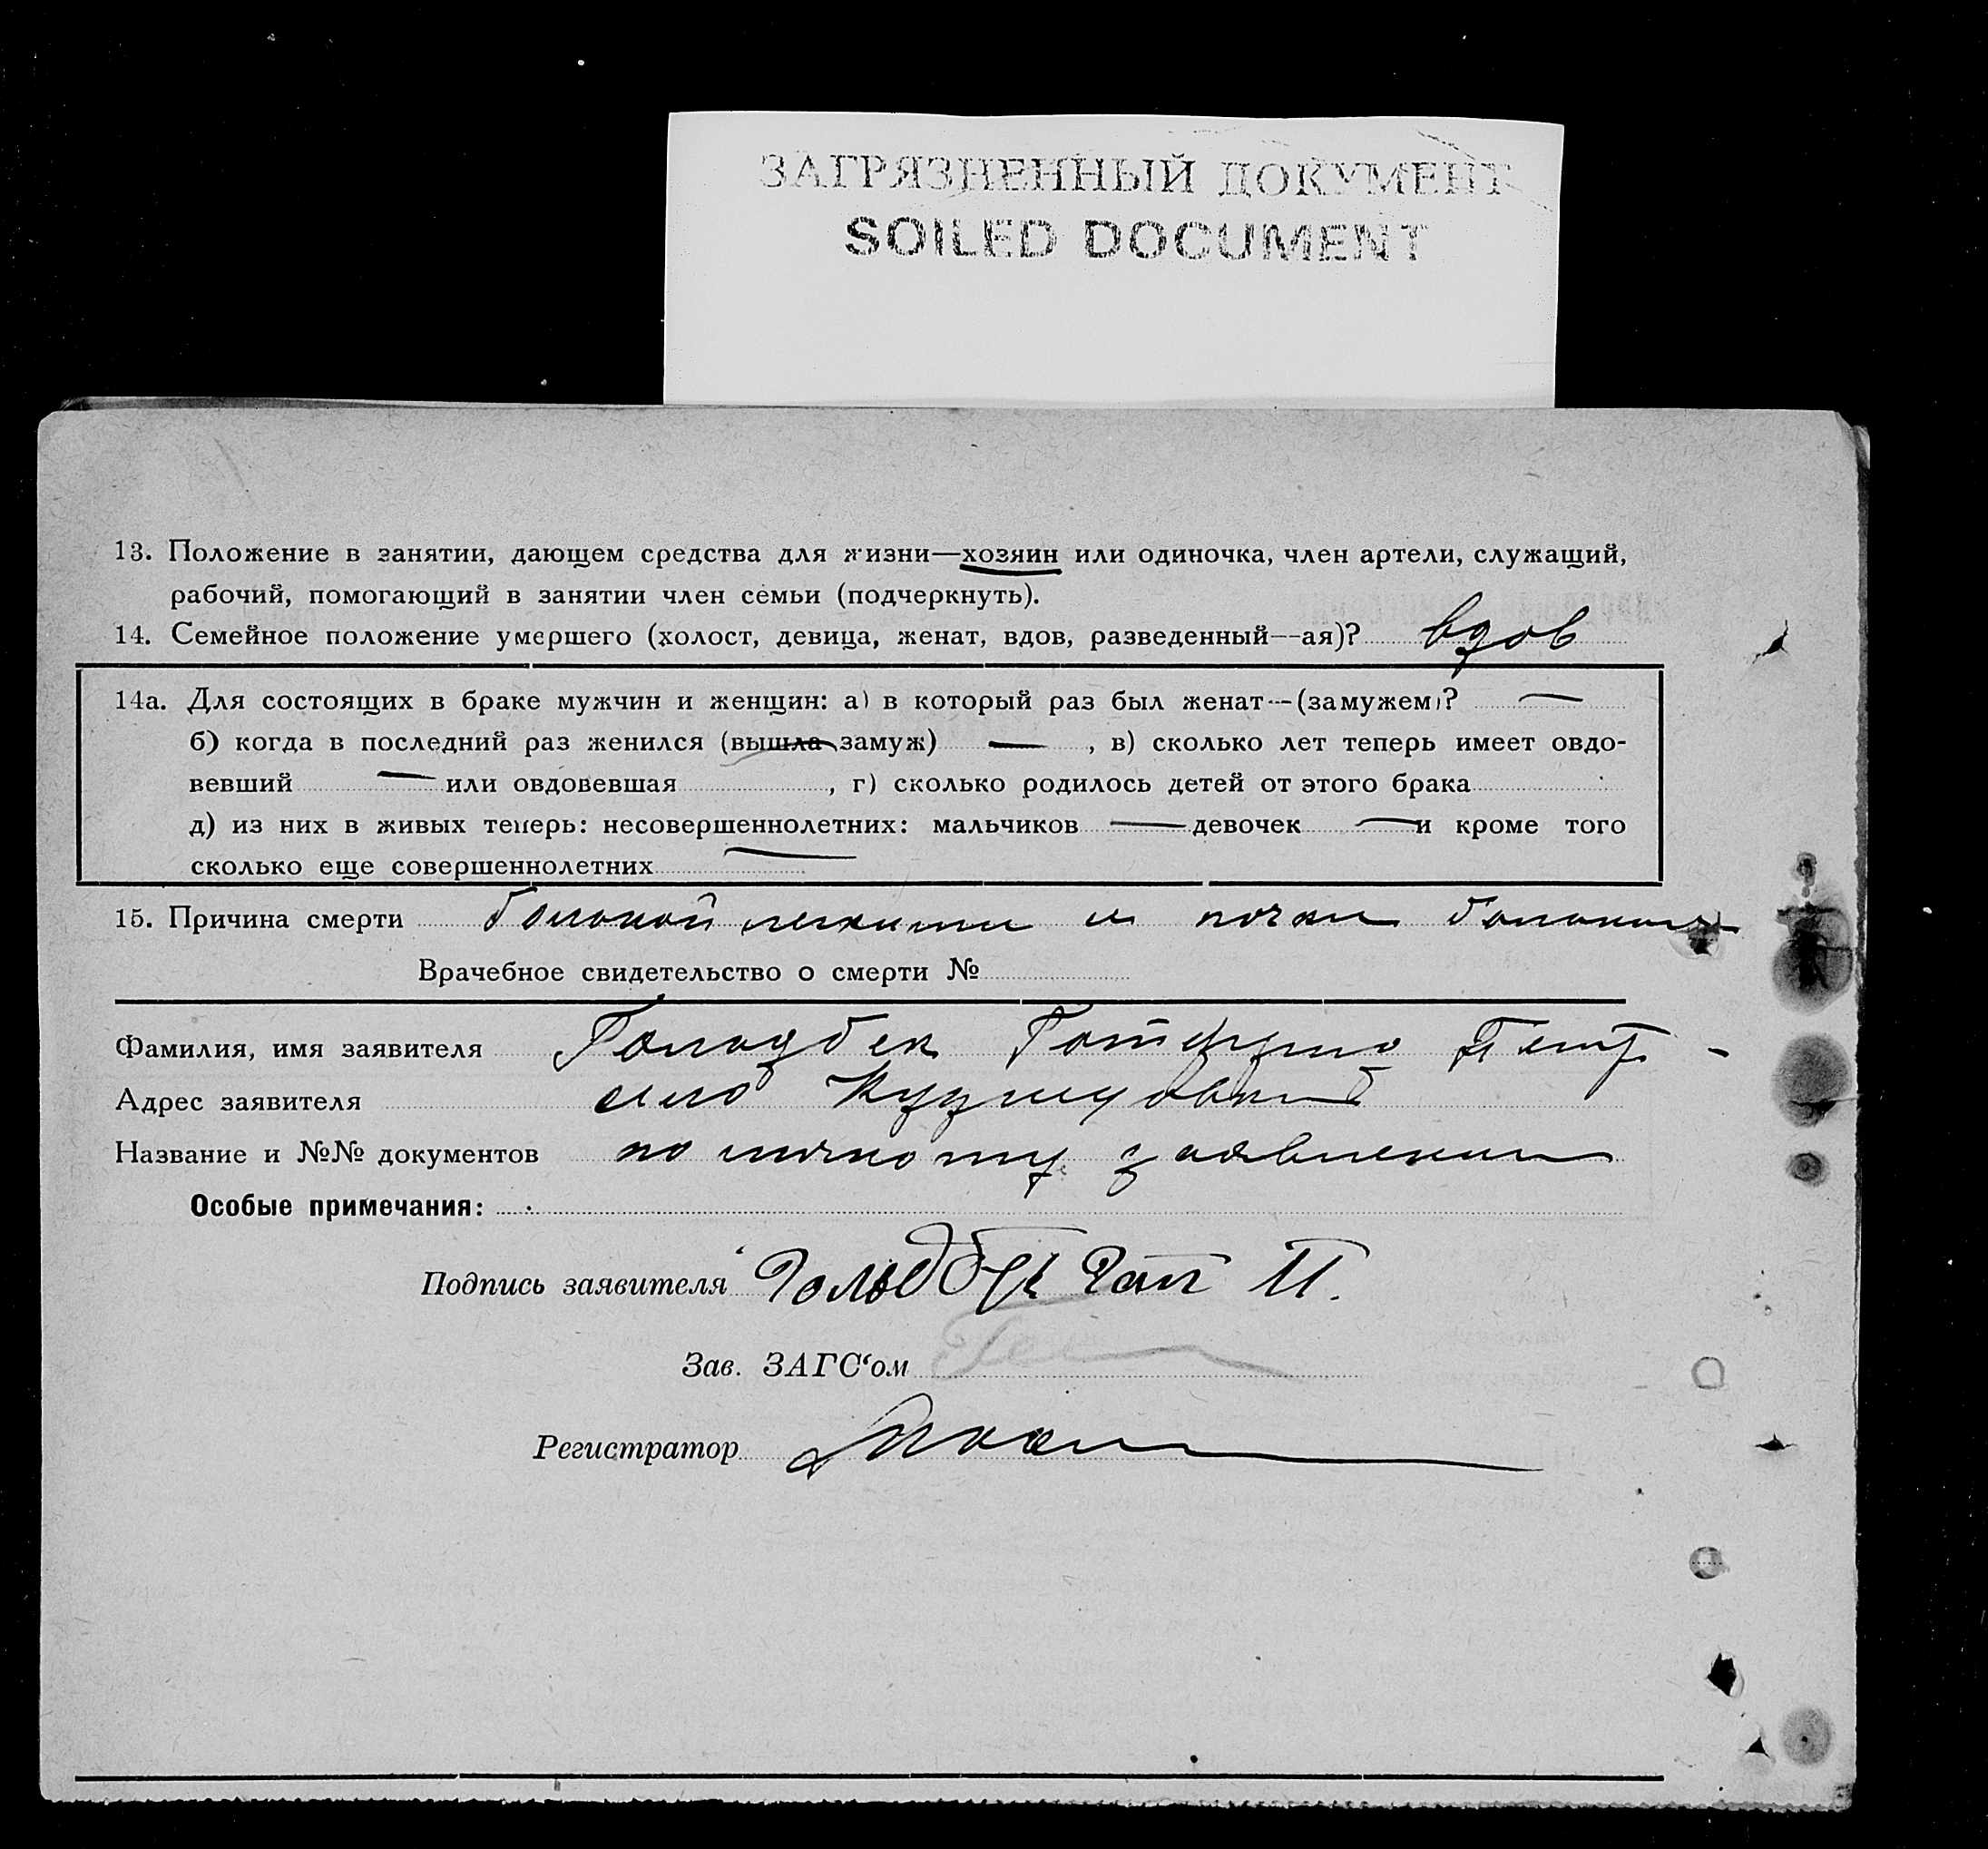 ЗАГРЯЗНЕННЫЙ ДОКУМЕНТ
SOILED DOCUMENT
13. Положение в занятии, дающем средства для жизни—хозяин или одиночка, член артели, служащий,
рабочий, помогающий в занятии член семьи (подчеркнуть).
14. Семейное положение умершего (холост, девица, женат, вдов, разведенный—ая)? вдов
14а. Для состоящих в браке мужчин и женщин: а) в который раз был женат—(замужем)? —
б) когда в последний раз женился (вышла замуж) — , в) сколько лет теперь имеет овдо-
вевший — или овдовевшая , г) сколько родилось детей от этого брака
д) из них в живых теперь: несовершеннолетних: мальчиков — девочек — и кроме того
сколько еще совершеннолетних —
15. Причина смерти и почки
Врачебное свидетельство о смерти №
Фамилия, имя заявителя Гольдбек Готфрид Петр -
Адрес заявителя село
Название и №№ документов по личному заявлению
Особые примечания:
Подпись заявителя Гольдбек Гот П.
Зав. ЗАГС‘ом
Регистратор